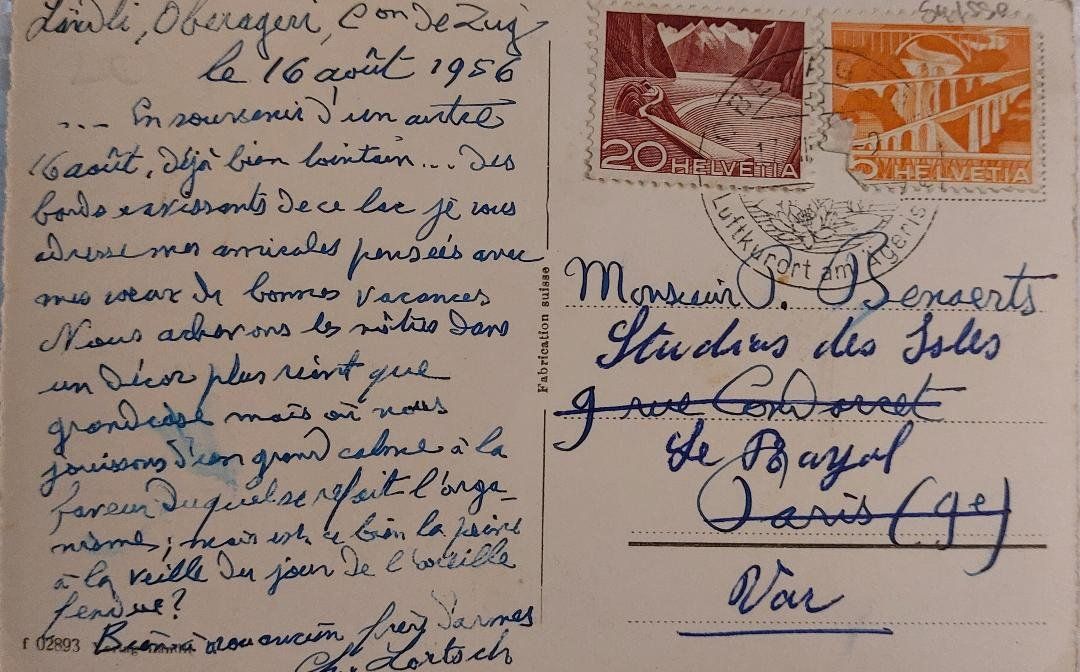 Ländli, Oberageri, Con de Zug
le 16 août 1956
... En souvenir d'un autre
16 août, déjà bien lointain... des
bords ravissants de ce lac je vous
adresse mes amicales pensées avec
mes voeux de bonnes vacances
Nous achevons les nôtres dans
un décor plus riant que
grandiose mais où nous
jouissons d'un grand calme à la
faveur duquel se refait l'orga-
nisme; mais est-ce bien la peine
à la veille du jour de l'oreille
fendue?
Bien à vous frère d'armes
Ch. Lortsch
f 02893
Fabrication suisse
Suisse
20 HELVETIA
5 HELVETIA
Luftkurort am Ägeris
Monsieur P. Benaerts
Studios des Isles
9 rue Condorcet
Le Rayol
Paris (9e)
Var